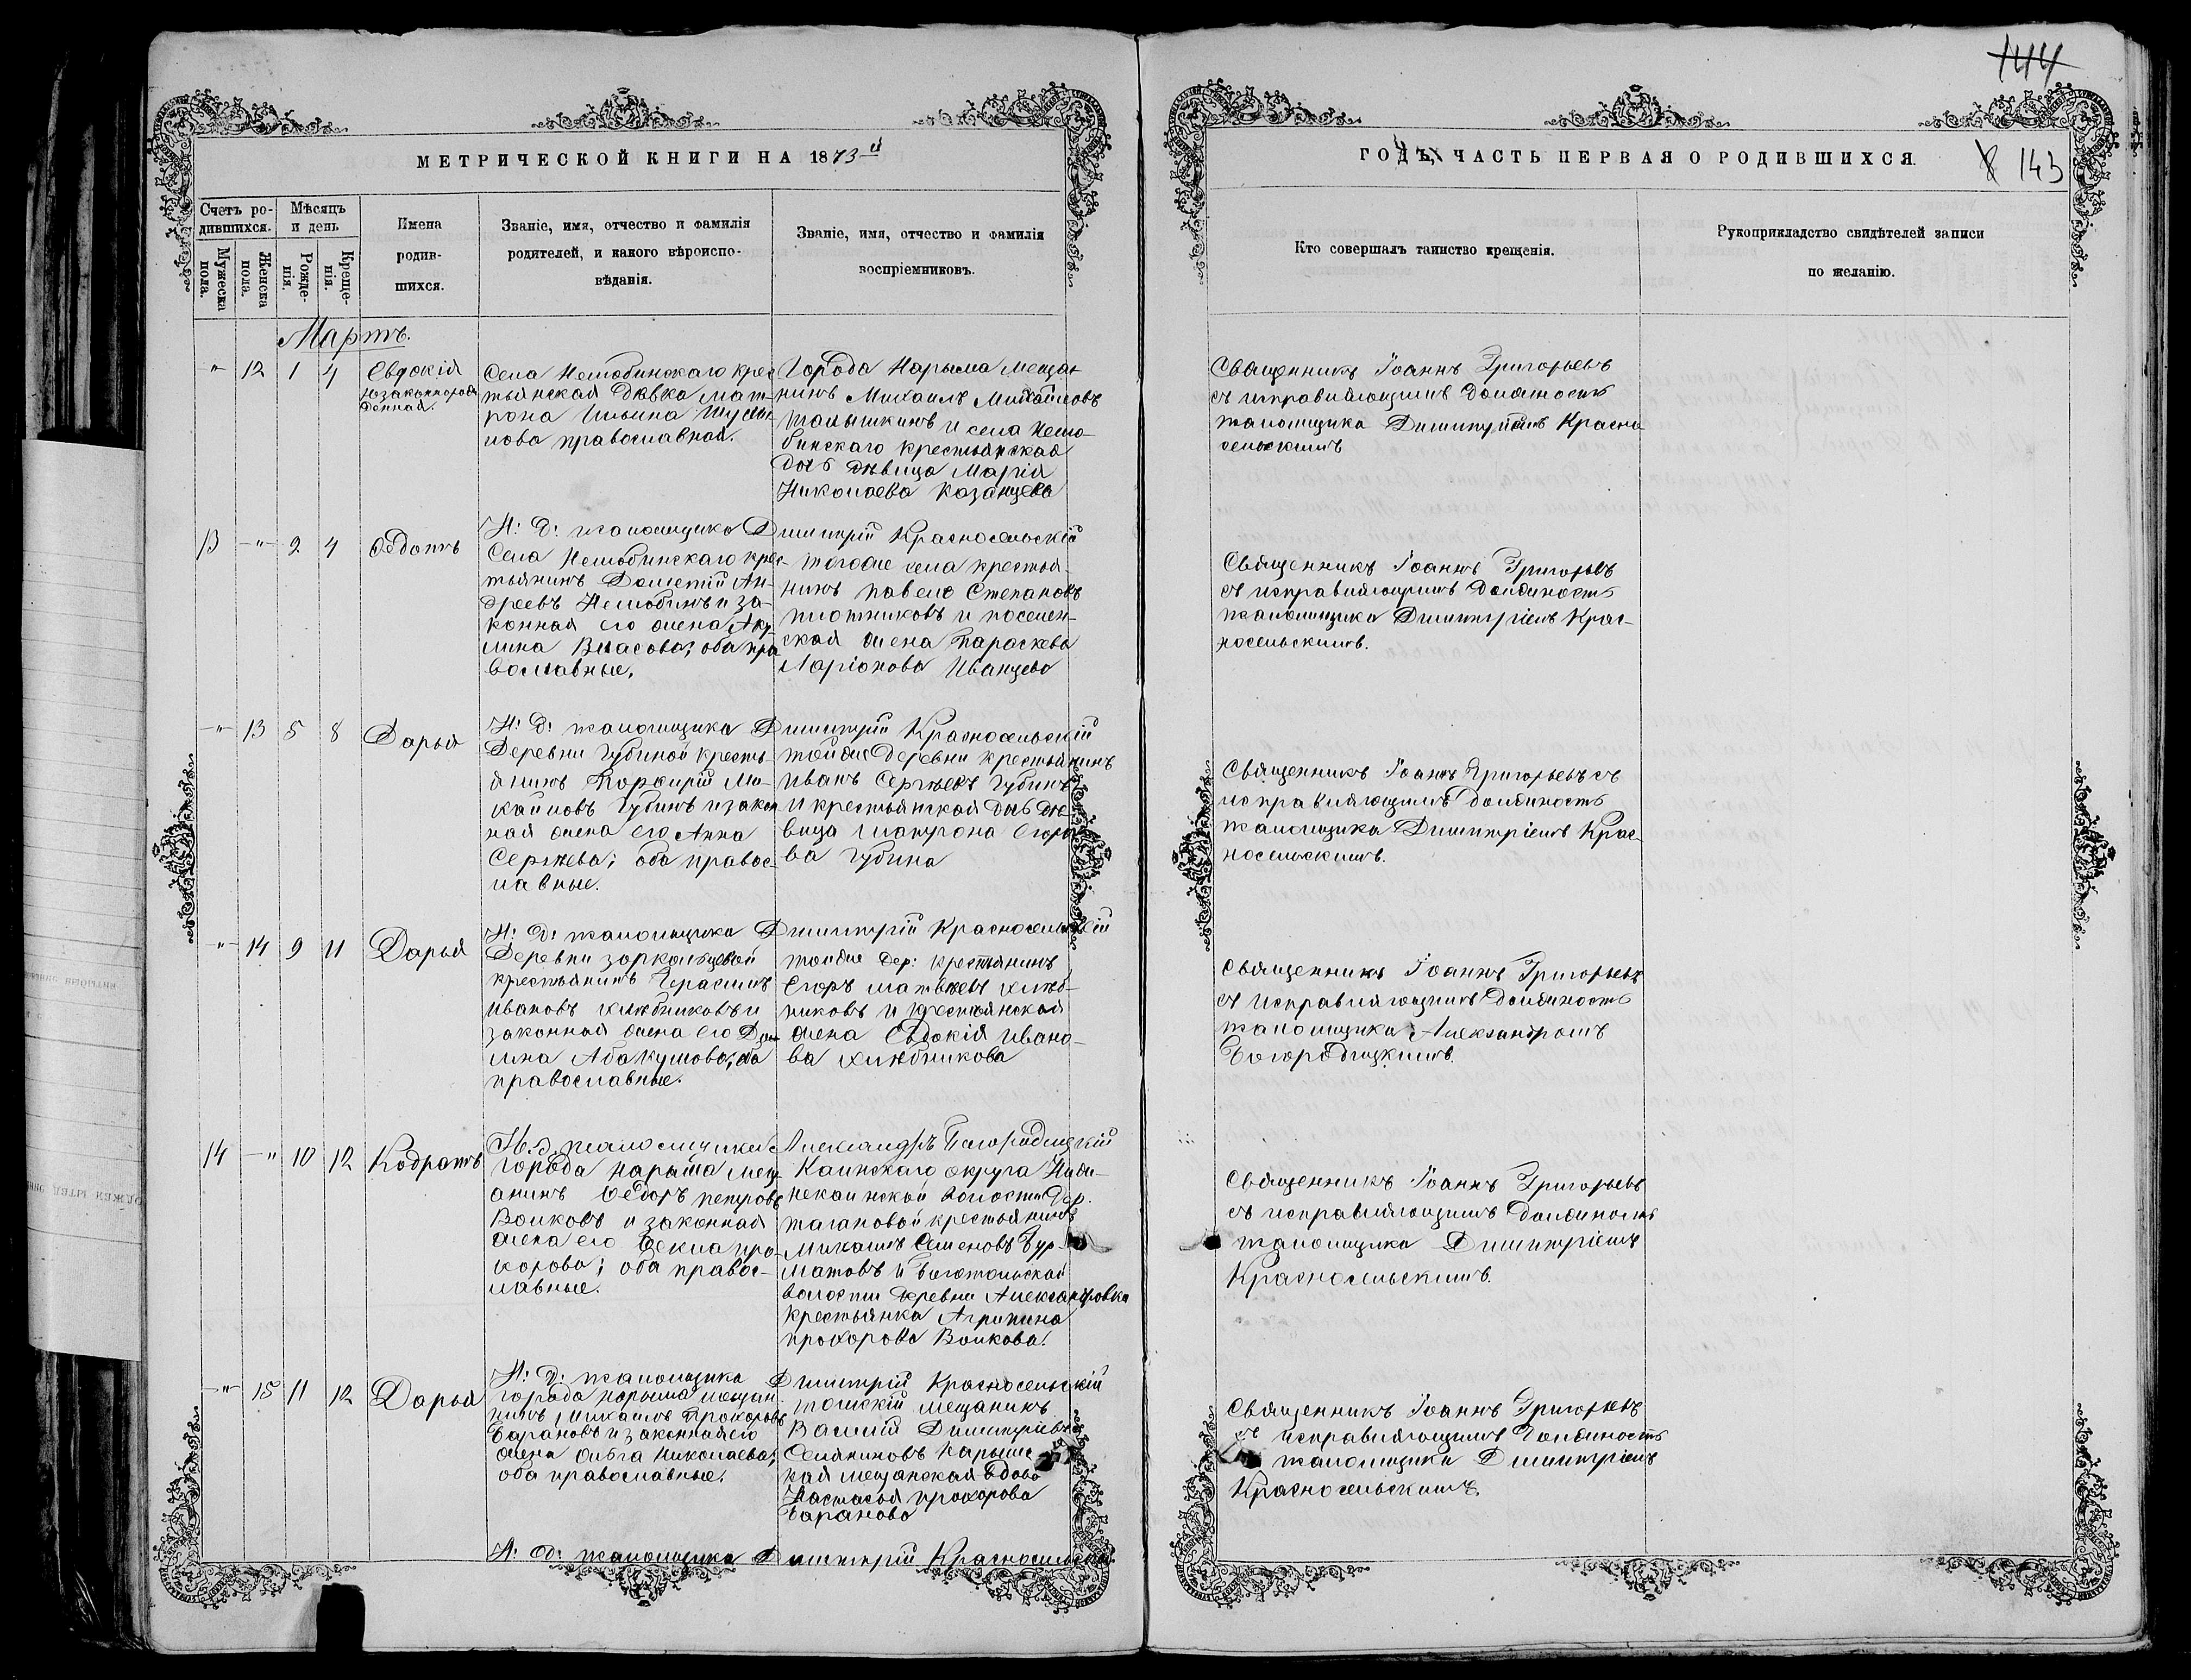 144
МЕТРИЧЕСКОЙ КНИГИ НА 1873-й
ГОДЪ, ЧАСТЬ ПЕРВАЯ О РОДИВШИХСЯ.
143
Счетъ ро-
дившихся.
Мужеска
пола.
Женска
пола.
Мѣсяцъ
и день
Рожде-
нія.
Креще-
нія.
Имена
родив-
шихся.
Званіе, имя, отчество и фамилія
родителей, и какого вѣроиспо-
вѣданія.
Званіе, имя, отчество и фамилія
воспріемниковъ.
Кто совершалъ таинство крещенія.
Рукоприкладство свидѣтелей записи
по желанію.
Мартъ.
-"- 12 1 4
Евдокія
незаконнорож
денная.
Села Нелюбинскаго крес
тьянская дѣвка Мат-
рона Ильина
православная.
Города Нарыма мещан
нинъ Михаилъ Михайловъ
и села Нелю-
бинскаго крестьянская
дочь дѣвица Марія
Николаева Казанцева
Священникъ Іоаннъ Григорьевъ
съ исправляющимъ должность
псаломщика Димитріемъ Красно
сельскимъ
И: д: псаломщика Димитрій Красносельскій
13 -"- 2 4
Ѳедотъ
Села Нелюбинскаго крес-
тьянинъ Дометій Ан-
дреевъ Нелюбинъ и за-
конная его жена Аку-
лина Власова; оба пра
вославные.
Тогоже села крестья-
нинъ Павелъ Степановъ
Плотниковъ и поселен-
ская жена Параскева
Ларіонова Иванцева
Священникъ Іоаннъ Григорьевъ
съ исправляющимъ должность
псаломщика Димитріемъ Крас-
носельскимъ.
И: д: псаломщика Димитрій Красносельскій
-"- 13 5 8
Дарья
Деревни Губиной кресть-
янинъ Порфирій Ми-
хайловъ Губинъ и закон
ная жена его Анна
Сергѣева; оба правос-
лавные.
тойже деревни крестьянинъ
Иванъ Сергѣевъ Губинъ
и крестьянская дочь дѣ-
вица Матрона Егоро
ва Губина
Священникъ Іоаннъ Григорьевъ съ
исправляющимъ должность
псаломщика Димитріемъ Крас-
носельскимъ.
И: д: псаломщика Димитрій Красносельскій
-"- 14 9 11
Дарья
Деревни Зоркольцевой
крестьянинъ Герасимъ
Ивановъ Хлѣбниковъ и
законная жена его
Абакумова, оба
православные.
тойже дер: крестьянинъ
Егоръ Матвѣевъ Хлѣб-
никовъ и крестьянская
жена Евдокія Ивано-
ва Хлѣбникова
Священникъ Іоаннъ Григорьевъ
съ исправляющимъ должность
псаломщика Александромъ
Богородицкимъ.
И. д. псаломщика Александръ Богородицкій
14 -"- 10 12
Кодратъ
Города Нарыма мещ
анинъ Ѳедоръ Петровъ
Волковъ и законная
жена его Ѳекла Про-
хорова; оба правос-
лавные.
Каинскаго округа
волости Дер.
Тагановой крестьянинъ
Михаилъ Семеновъ Бур-
матовъ и Боготольской
волости деревни Александровки
крестьянка Агрипина
Прохорова Волкова.
Священникъ Іоаннъ Григорьевъ
съ исправляющимъ должность
псаломщика Димитріемъ
Красносельскимъ.
И: д: псаломщика Димитрій Красносельскій
-"- 15 11 12
Дарья
Города Нарыма мещан-
нинъ Михаилъ Прохоровъ
Барановъ и законная его
жена Ольга Николаева;
оба православные.
Томскій мещанинъ
Василій Димитріевъ
Селяниновъ Нарымс
кая мещанская вдова
Настасья Прохорова
Баранова
Священникъ Іоаннъ Григорьевъ
съ исправляющимъ должность
псаломщика Димитріемъ
Красносельскимъ.
И: д: псаломщика Димитрій Красносельскій